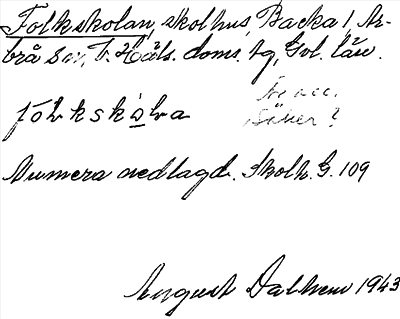 Folkskolan, skolhus, Backa 1, Ar-
brå sn, V. Häls. doms. tg, Gvl. län.
fólkskòlva
Är acc.
säker?
Numera nedlagd. Skolh. G. 109
August Dalhem 1943